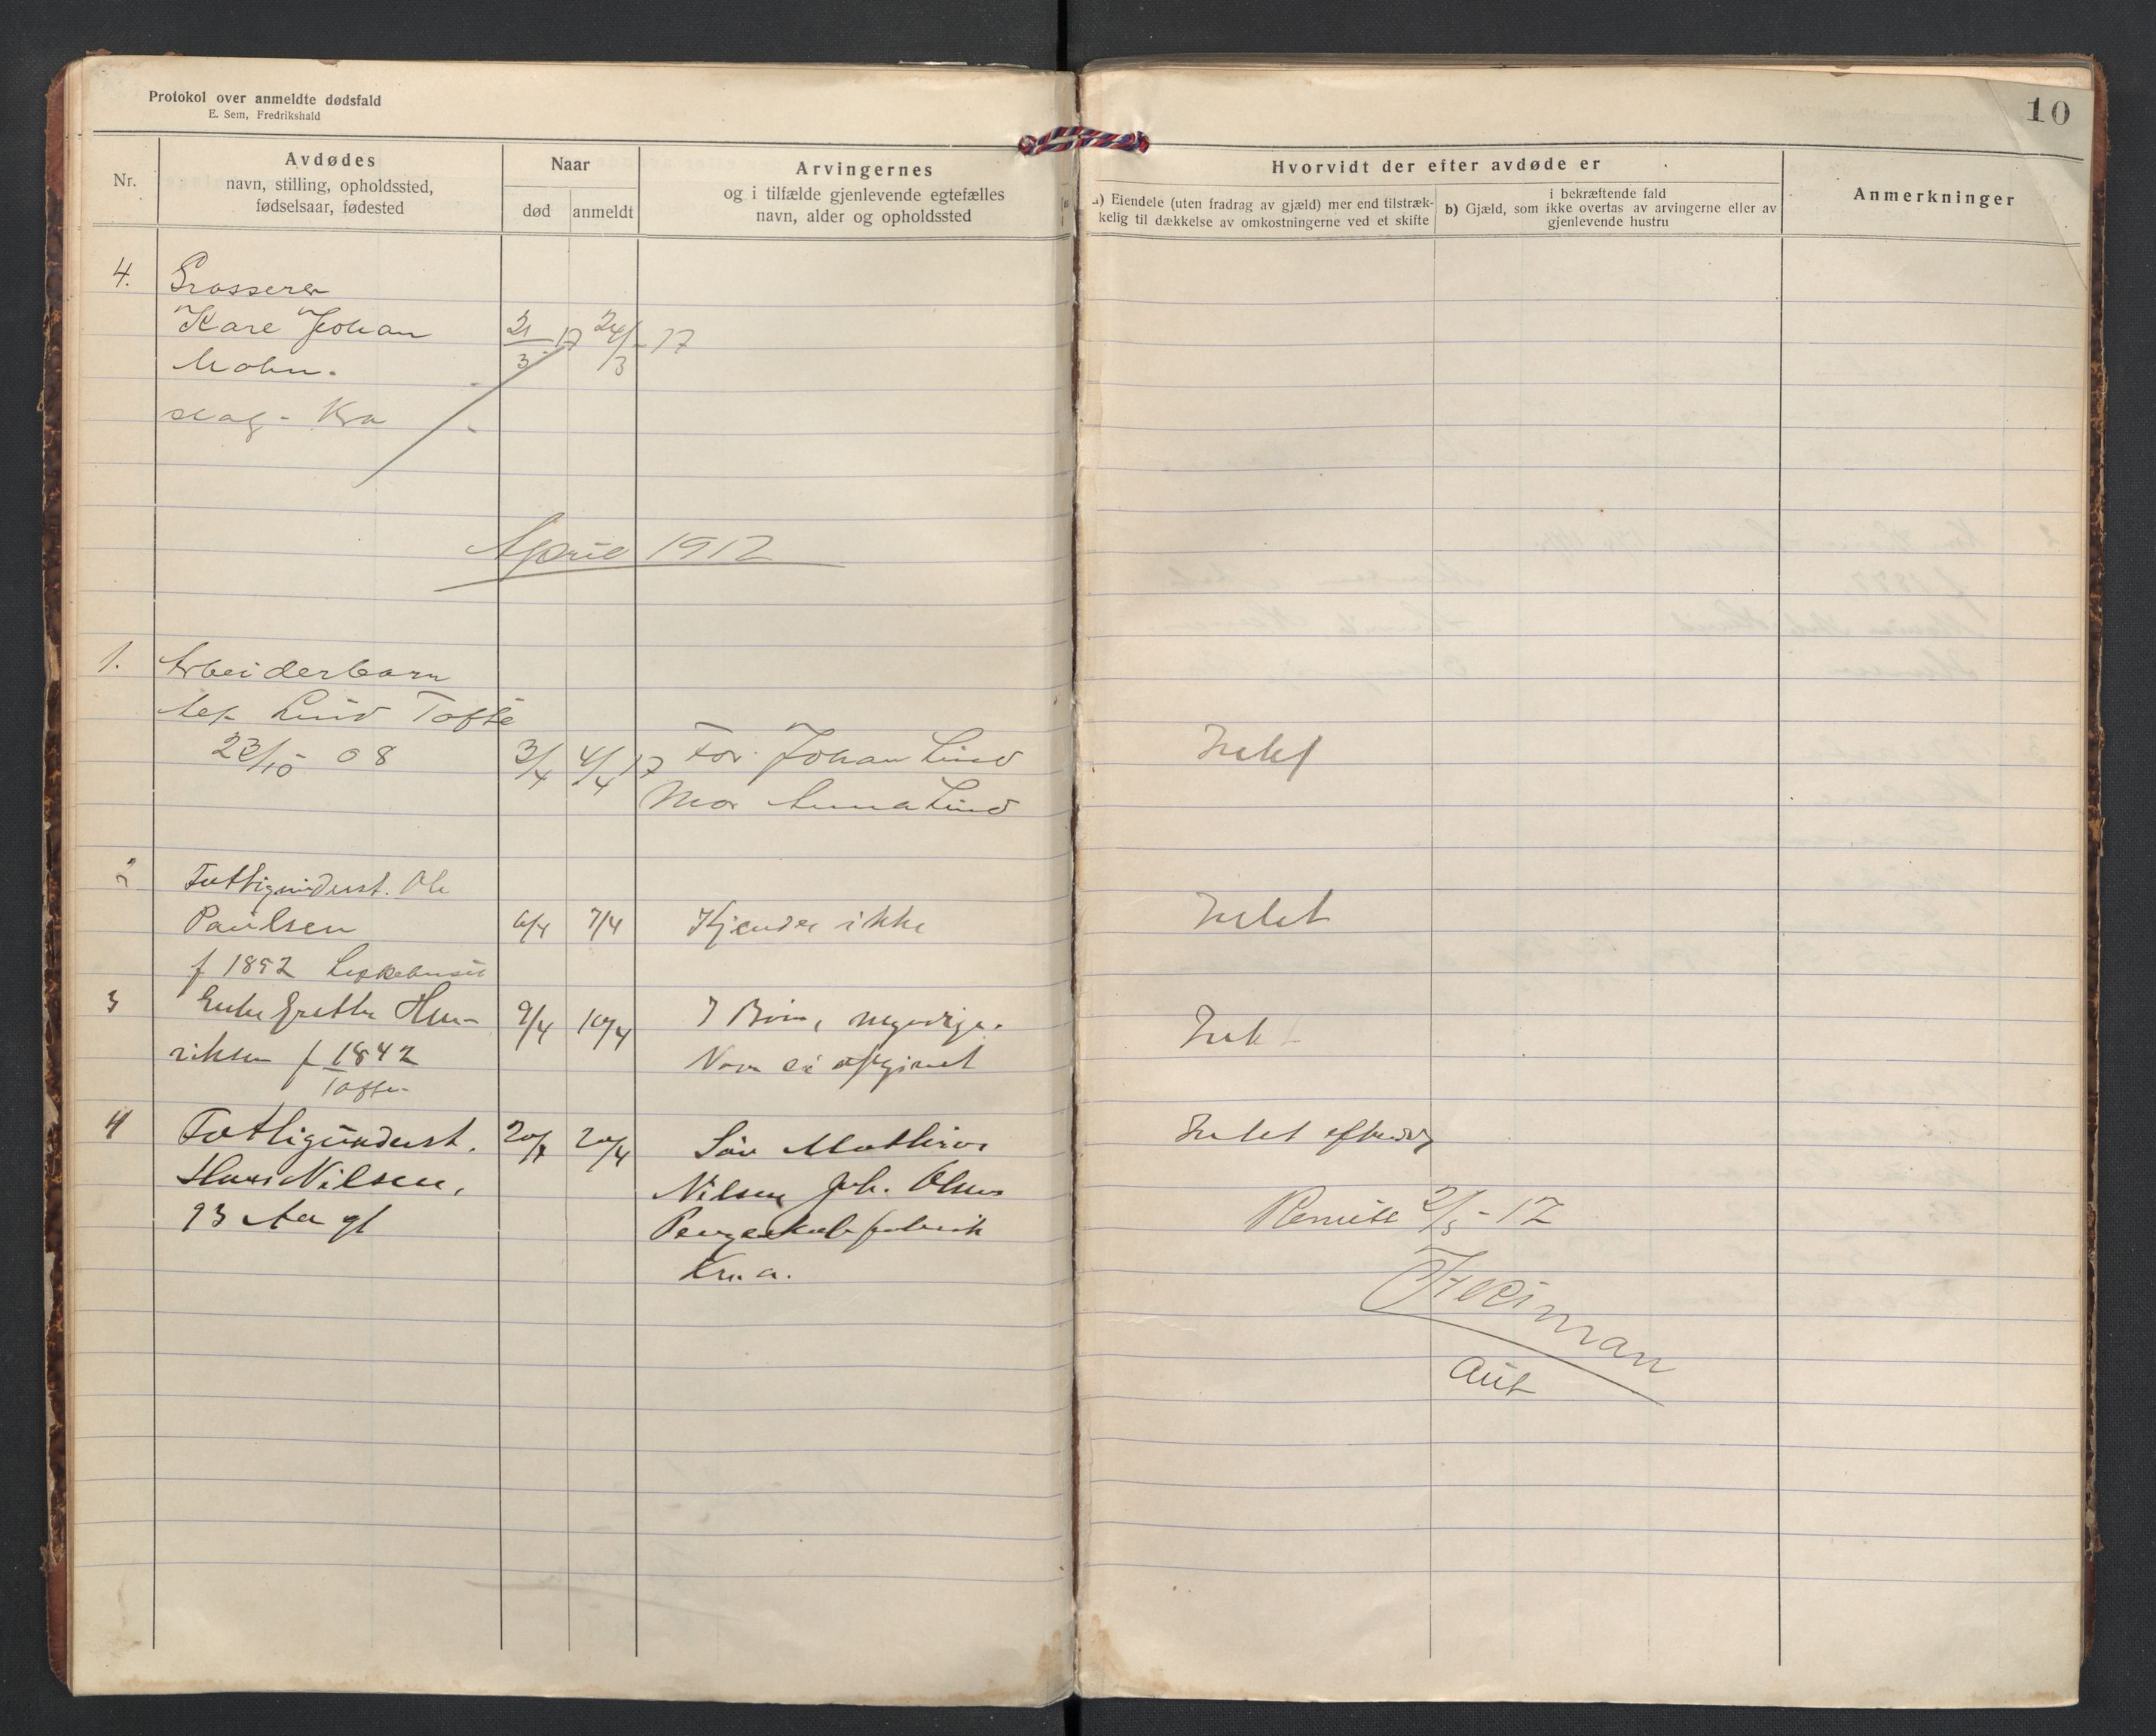 Protokol over anmeldte dødsfald
E. Sem, Fredrikshald
10
Nr.
Avdødes
navn, stilling, opholdssted,
fødselsaar, fødested
Naar
død
anmeldt
Arvingernes
og i tilfælde gjenlevende egtefælles
navn, alder og opholdssted
Hvorvidt der efter avdøde er
a) Eiendele (uten fradrag av gjæld) mer end tilstræk-
kelig til dækkelse av omkostningerne ved et skifte
i bekræftende fald
b) Gjæld, som ikke overtas av arvingerne eller av
gjenlevende hustru
Anmerkninger
4. Grosserer
Karl Johan 21/3 17 24/3 - 17
Mohn.
- Kra
April 1917
1. Arbeiderbarn
Lind Tofte
23/10 08 3/4 4/4 17 Far Johan Lind Intet
Mor Anna Lind
2 Fattigunderst. Ole
Paulsen 6/4 7/4 Kjender ikke Intet
f 1852
3 Enke Grethe Hen- 9/4 10/4 7 Børn, myndige. Intet
riksen f 1842 Navn ei opgivet
Tofte
4 Fattigunderst. 20/4 20/4 Søn Mathias Intet
Hans Nilsen, Nilsen Joh. Olsens
93 Aar gl Pengeskabsfabrik 2/5 - 17
Kr.a.